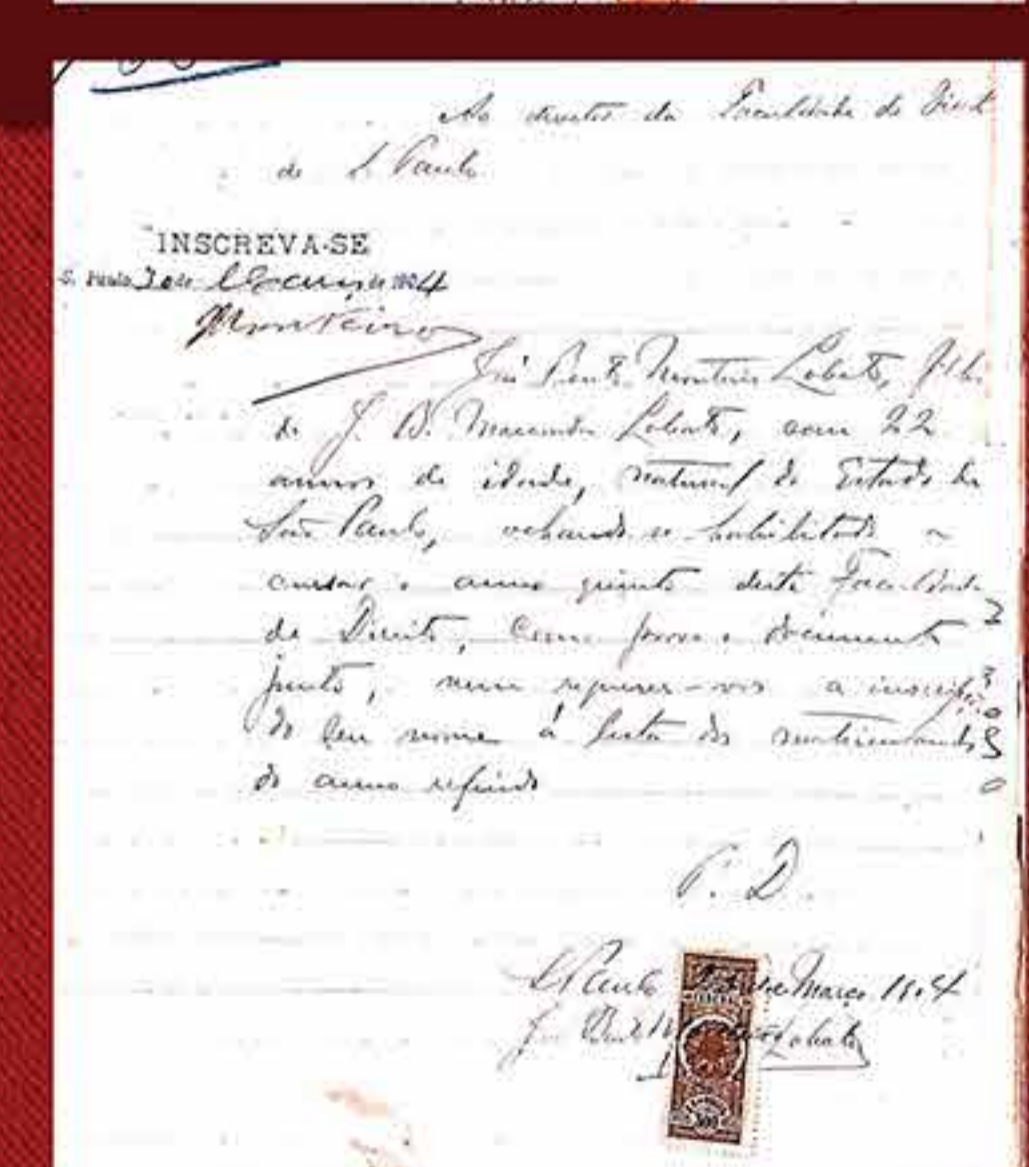 Ao director da Faculdade de Direit
de S Paulo
INSCREVA-SE
S. Paulo, 30 de Março de 1904
Monteiro
José Bento Monteiro Lobato, filho
de J. B. Marcondes Lobato, com 22
annos de idade, natural do Estado de
São Paulo, achando-se habilitado a
cursar o anno quinto desta Faculdade
de Direito, como prova o documento
junto, vem requerer-vos a inscripção
do seu nome á lista dos matriculandos
do anno referido
P. D.
S Paulo de Março 1904
José Bento Monteiro Lobato
300